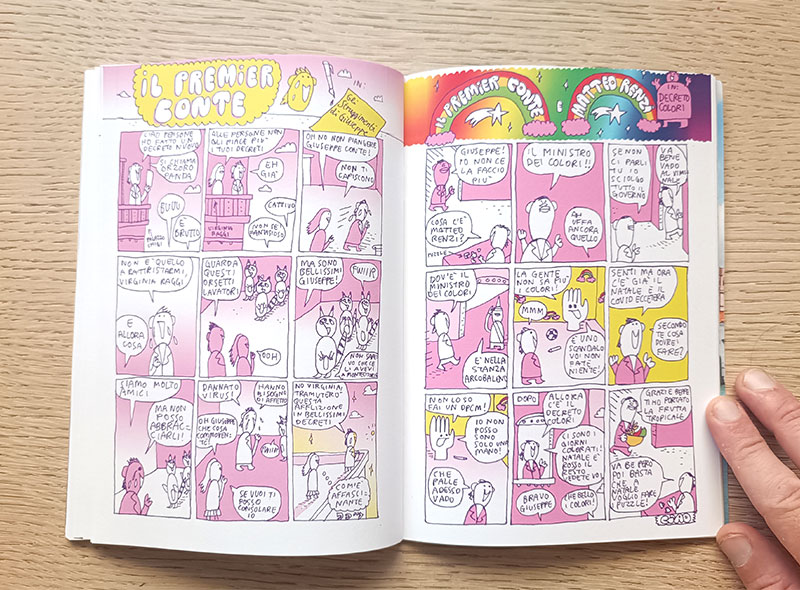 IL PREMIER
CONTE
IN:
Gli
Struggimenti
di Giuseppe
CIAO PERSONE
HO FATTO UN
DECRETO NUOVO
SI CHIAMA
ORZORO
PANDA
BUUU
È
BRUTTO
ALLE PERSONE NON
GLI PIACE PIU'
I TUOI DECRETI
EH
GIA'
VIRGINIA
RAGGI
CATTIVO
NON SEI
FANTASIOSO
OH NO NON PIANGERE
GIUSEPPE CONTE!
NON TI
CAPISCONO
NON E' QUELLO
A RATTRISTARMI,
VIRGINIA RAGGI
E
ALLORA
COSA
GUARDA
QUESTI
ORSETTI
LAVATORI
OOH
MA SONO
BELLISSIMI
GIUSEPPE!
FWIIIP
NON SAPEVO CHE CE
LI AVEVI
A MONTECITORIO
SIAMO MOLTO
AMICI
MA NON
POSSO
ABBRAC=
CIARLI!
DANNATO
VIRUS!
HANNO
BISOGNO
DI AFFETTO
OH GIUSEPPE
CHE COSA
COMMOVEN=
TE!
SE VUOI TI
POSSO
CONSOLARE
IO
NO VIRGINIA:
TRAMUTERO'
QUESTA
AFFLIZIONE
IN BELLISSIMI
DECRETI
COM'È
AFFASCI=
NANTE
IL PREMIER CONTE
E
MATTEO RENZI
IN:
DECRETO
COLORI
GIUSEPPE!
IO NON CE
LA FACCIO
PIU'
COSA C'E'
MATTEO
RENZI?
PUZZLE
IL MINISTRO
DEI COLORI!!
UH
UFFA
ANCORA
QUELLO
SE NON
CI PARLI
TU IO
SCIOLGO
TUTTO IL
GOVERNO
VA
BENE
VADO
AL VIMI
NALE
DOV'E' IL
MINISTRO
DEI COLORI
E' NELLA
STANZA
ARCOBALENO
LA GENTE
NON SA PIU
I COLORI!
MMM
E' UNO
SCANDALO
VOI NON
FATE
NIENTE!
SENTI MA ORA
C'E' GIA' IL
NATALE E IL
COVID ECCETERA
SECONDO
TE COSA
DOVREI
FARE?
NON LO SO
FAI UN DPCM!
IO NON
POSSO
SONO
SOLO UNA
MANO!
CHE
PALLE
ADESSO
VADO
DOPO
ALLORA
C'È IL
DECRETO
COLORI
CI SONO I
GIORNI
COLORATI!
NATALE E'
ROSSO IL
RESTO
VEDETE VOI
BRAVO
GIUSEPPE
CHE BELLO
I COLORI!
GRAZIE BEPPE
TI HO PORTATO
LA FRUTTA
TROPICALE
VA BE PERO
POI BASTA
CHE A
NATALE
VOGLIO FARE
I PUZZLE!